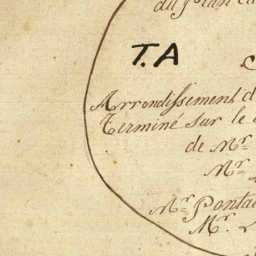 du Plan
T.A
Arrondissement d
Terminé sur le
de Mr
Mr
Mr Ponta
Mr